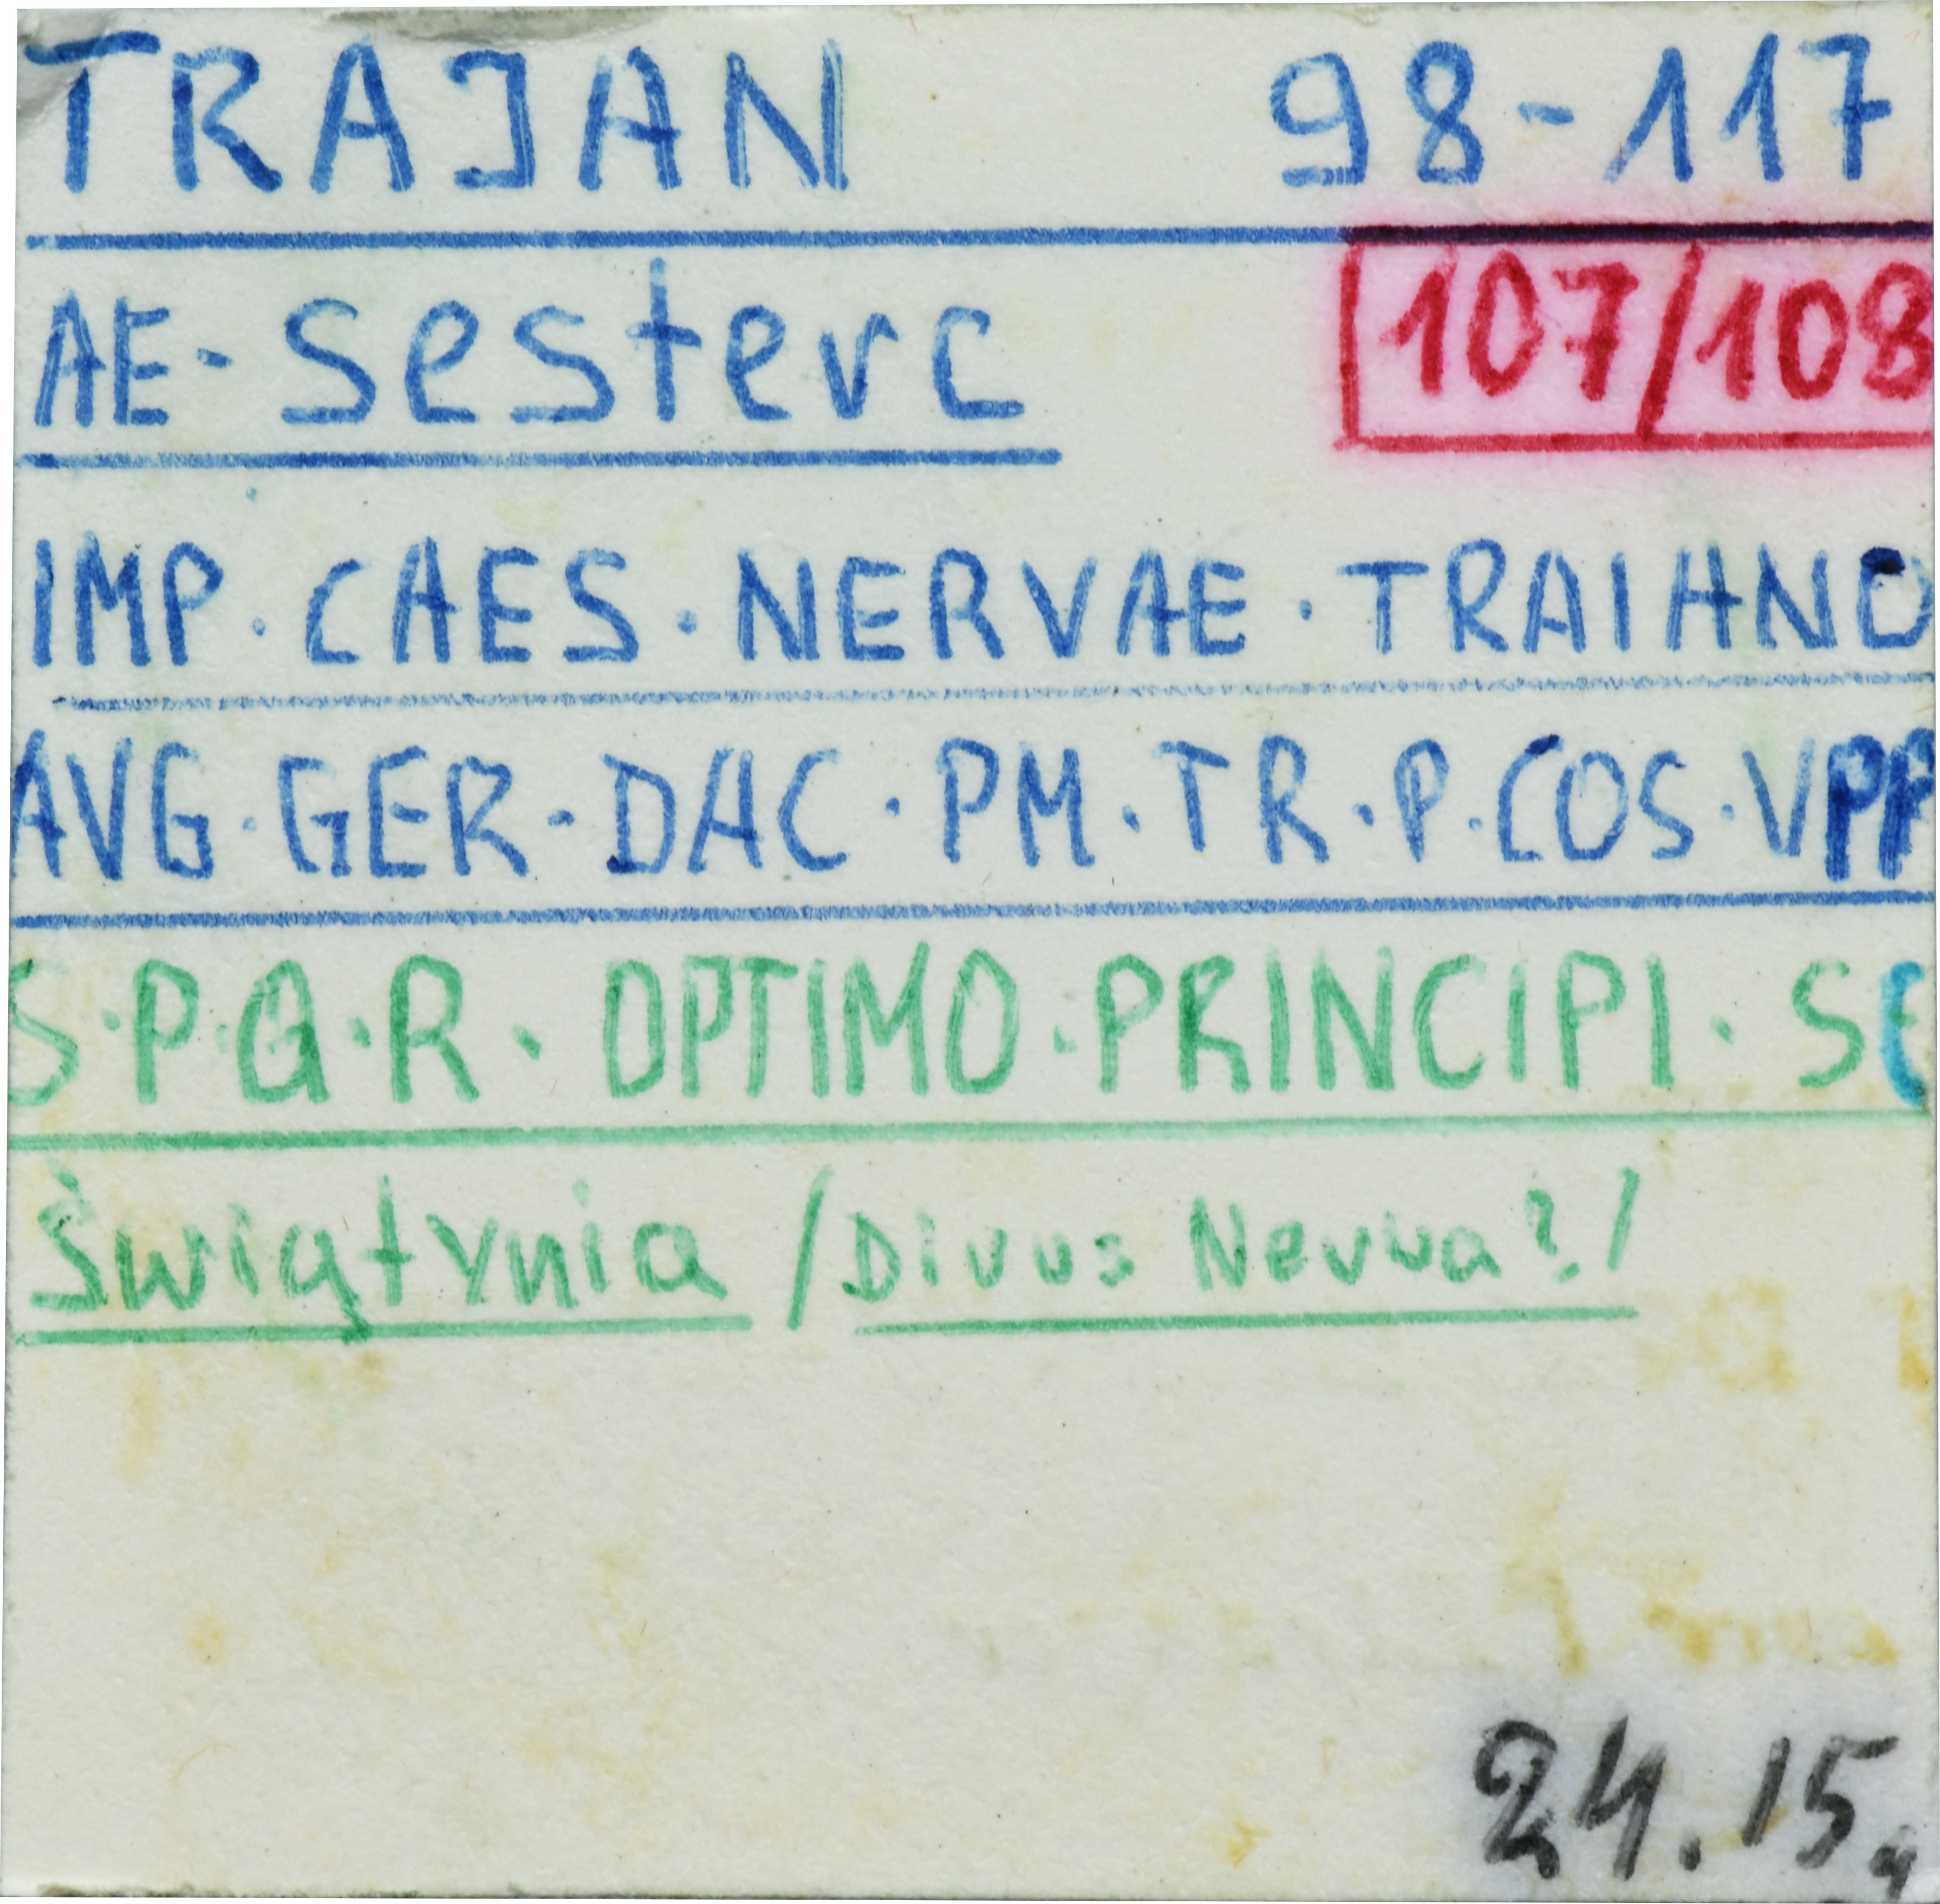 TRAJAN 98-117
AE-sesterc 107/108
IMP·CAES·NERVAE·TRAIANO
AVG·GER-DAC·PM·TR·P·COS·VPP
S·P·Q·R·OPTIMO·PRINCIPI·SC
świątynia /Divus Nerva?/
24.15g